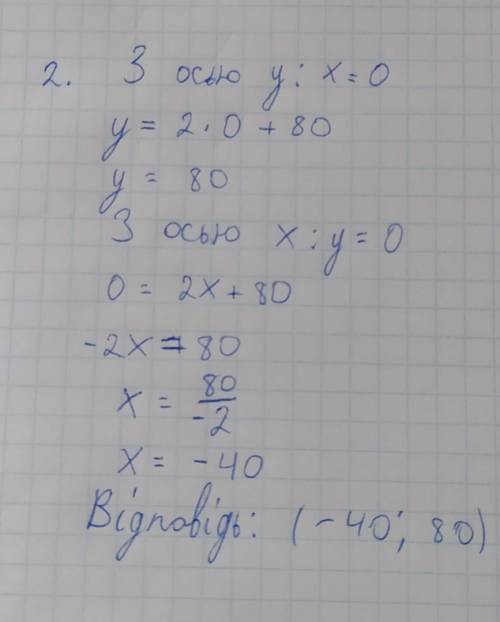 2. З осью y: x=0
y = 2·0 + 80
y = 80
З осью x: y = 0
0 = 2x + 80
-2x = 80
x = 80/-2
x = -40
Відповідь: (-40; 80)